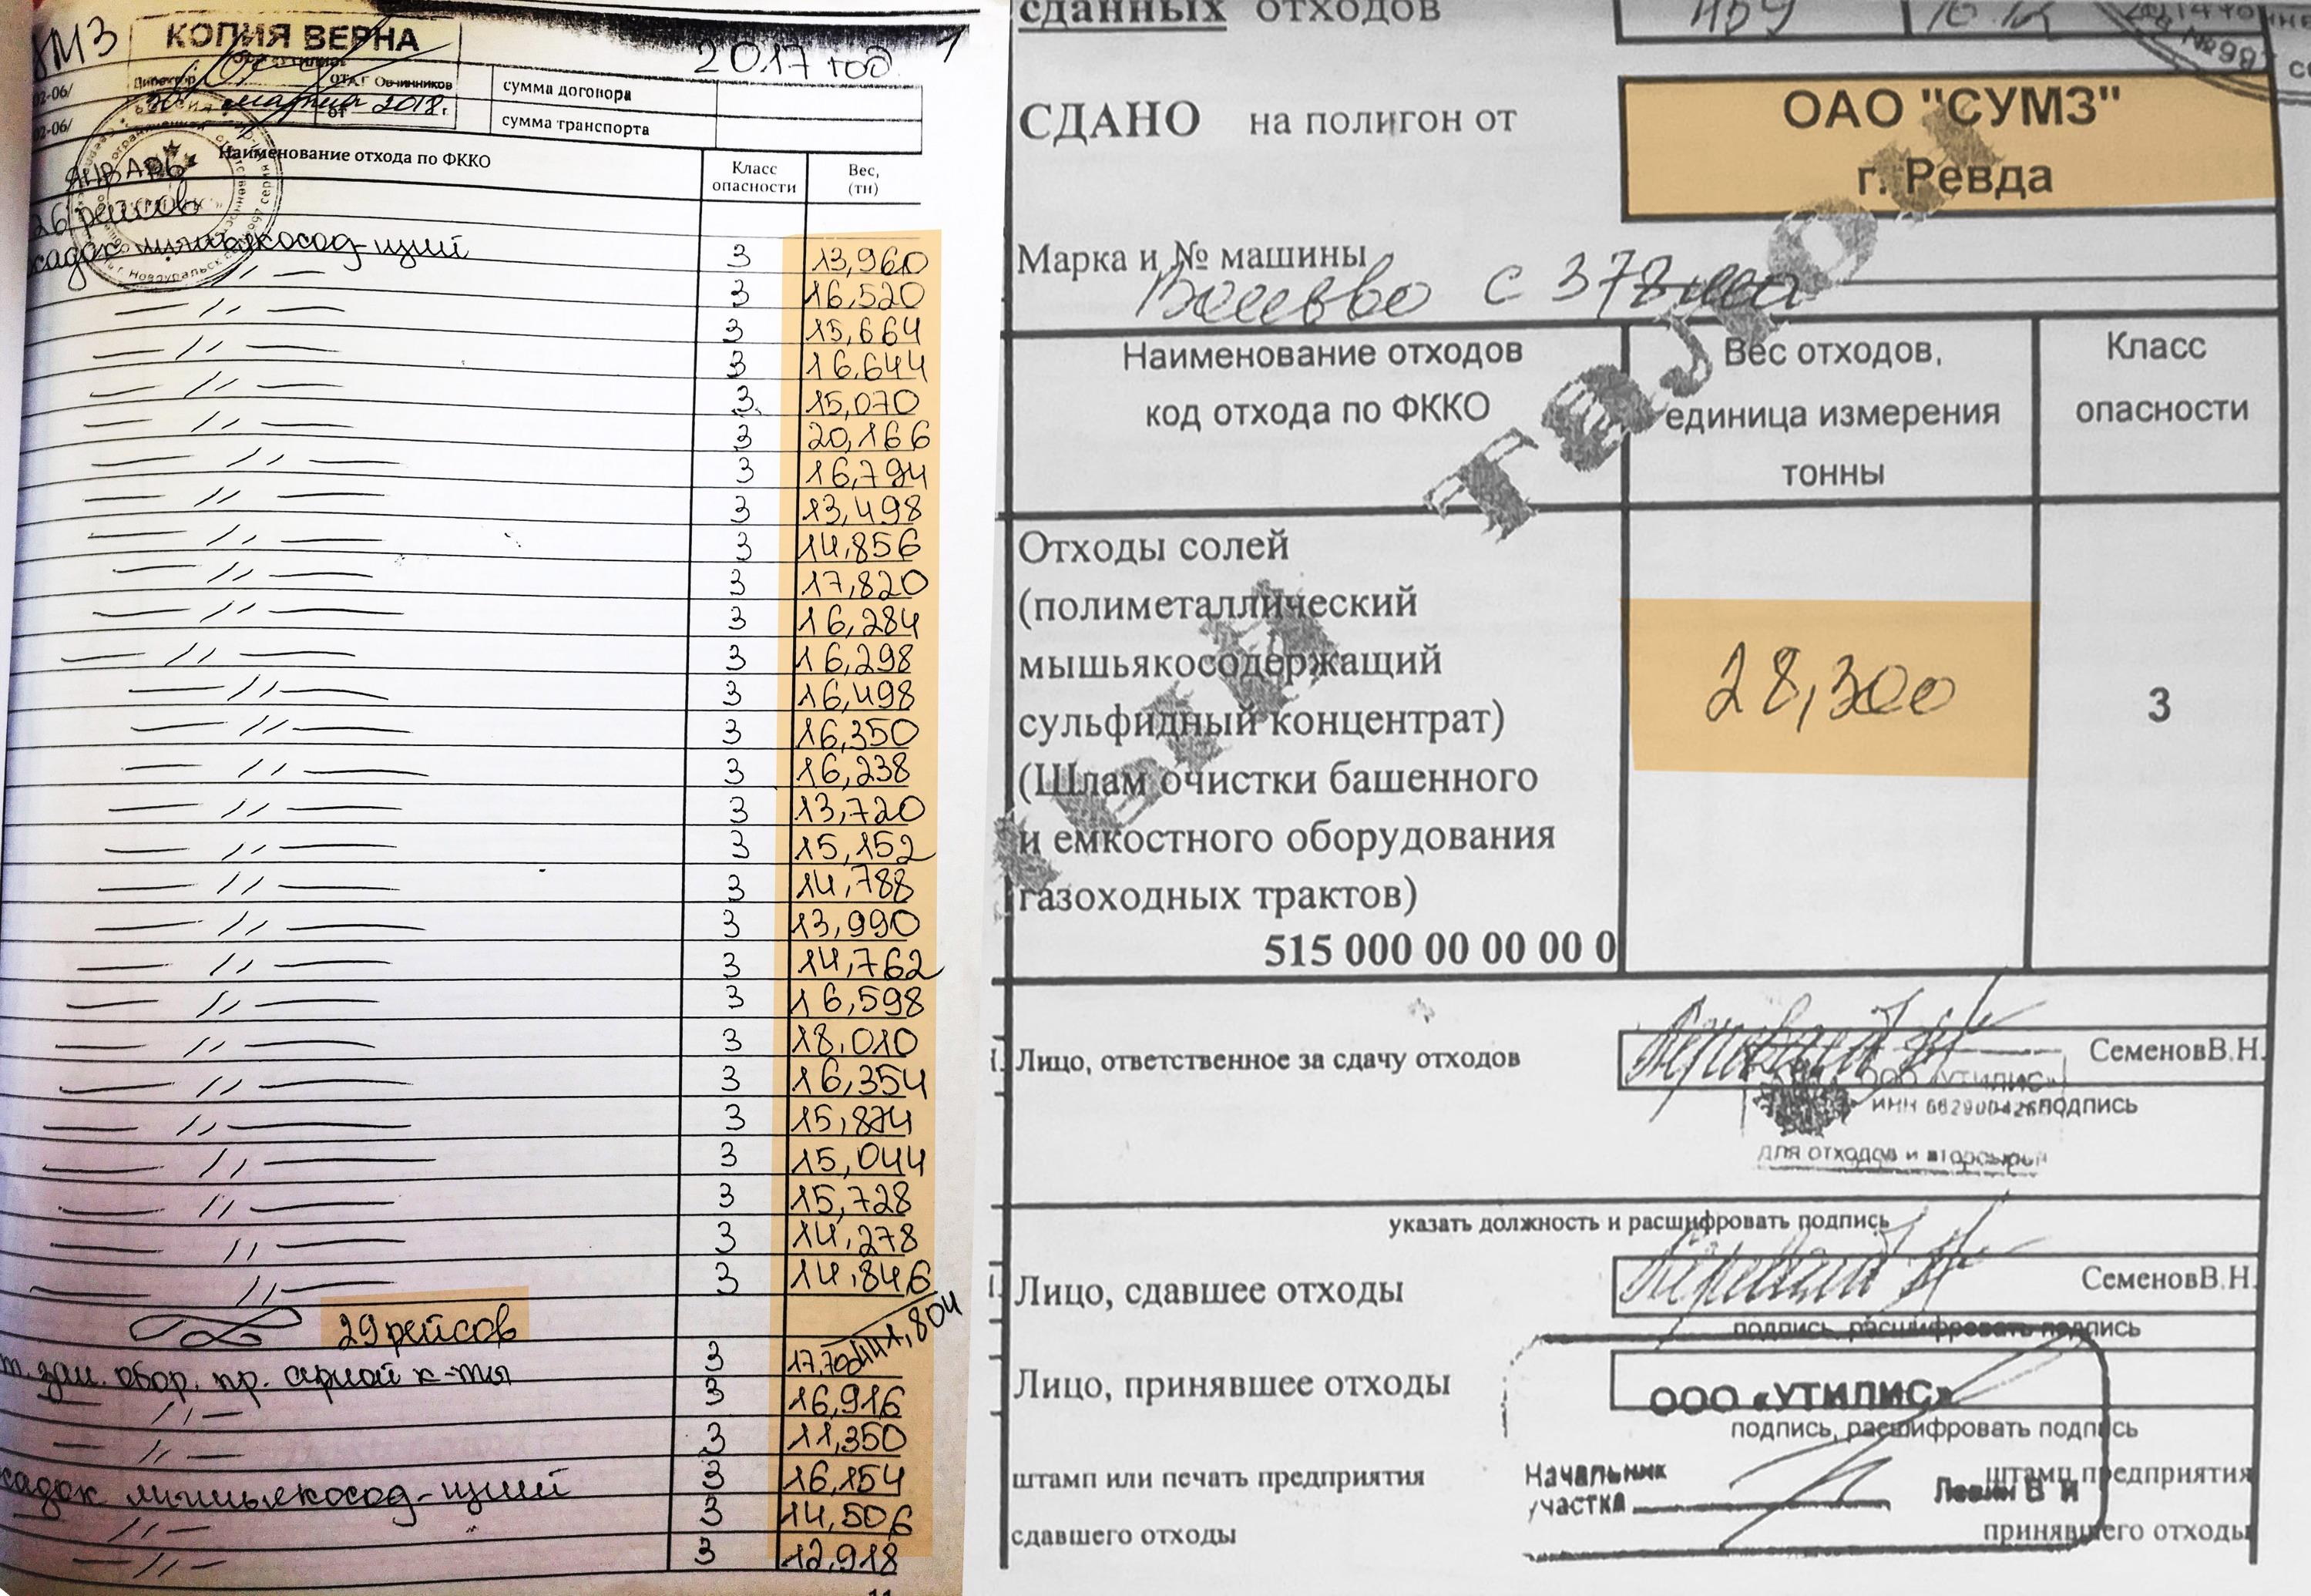 УМЗ
КОПИЯ ВЕРНА
2017 год
1
Директор
Г Овчинников
02-06/
сумма договора
марта 2018 г.
02-06/
от
сумма транспорта
Наименование отхода по ФККО
Класс опасности
Вес, (тн)
ЯНВАРЬ
26 рейсов
садок мышьякосод-щий 3 13,960
— // — 3 16,520
— // — 3 15,664
— // — 3 16,644
— // — 3 15,070
— // — 3 20,166
— // — 3 16,794
— // — 3 13,498
— // — 3 14,856
— // — 3 17,820
— // — 3 16,284
— // — 3 16,298
— // — 3 16,498
— // — 3 16,350
— // — 3 16,238
— // — 3 13,720
— // — 3 15,152
— // — 3 14,788
— // — 3 13,990
— // — 3 14,762
— // — 3 16,598
— // — 3 18,010
— // — 3 16,354
— // — 3 15,874
— // — 3 15,044
— // — 3 15,728
— // — 3 14,278
— // — 3 14,846
29 рейсов
обор. пр. серной к-ты 3
— // — 3 16,916
— // — 3 11,350
садок мышьякосод-щий 3 16,154
— // — 3 14,506
— // — 3 12,918
сданных отходов
СДАНО на полигон от
ОАО "СУМЗ"
г. Ревда
Марка и № машины
Вольво с 378
Наименование отходов
код отхода по ФККО
Вес отходов,
единица измерения
тонны
Класс
опасности
Отходы солей
(полиметаллический
мышьякосодержащий
сульфидный концентрат)
(Шлам очистки башенного
и емкостного оборудования
газоходных трактов)
515 000 00 00 00 0
28,300
3
Лицо, ответственное за сдачу отходов
СеменовВ.Н.
ООО «УТИЛИС»
ИНН
подпись
для отходов и вторсырья
указать должность и расшифровать подпись
Лицо, сдавшее отходы
СеменовВ.Н.
подпись, расшифровать подпись
Лицо, принявшее отходы
ООО «УТИЛИС»
подпись, расшифровать подпись
штамп или печать предприятия
Начальник
участка
Левин В И
штамп предприятия
сдавшего отходы
принявшего отходы